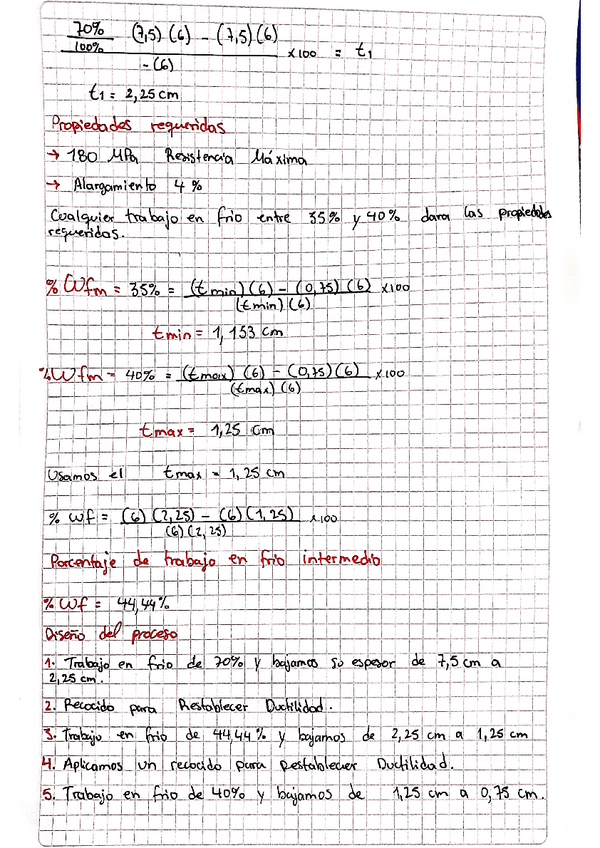 70% (7,5)(6) - (7,5)(6)
100%
-(6) x100 = t1
t1 = 2,25 cm
Propiedades requeridas
→ 180 MPa Resistencia Máxima
→ Alargamiento 4 %
Cualquier trabajo en frio entre 35% y 40% dara las propiedades
requeridas.
% Wfm = 35% = (tmin)(6) - (0,75)(6) x100
(tmin)(6)
tmin = 1,153 cm
% Wfm = 40% = (tmax)(6) - (0,75)(6) x100
(tmax)(6)
tmax = 1,25 cm
Usamos el tmax = 1,25 cm
% Wf = (6)(2,25) - (6)(1,25) x100
(6)(2,25)
Porcentaje de trabajo en frio intermedio
% Wf = 44,44%
Diseño del proceso
1. Trabajo en frio de 70% y bajamos su espesor de 7,5 cm a
2,25 cm.
2. Recocido para Restablecer Ductilidad.
3. Trabajo en frio de 44,44% y bajamos de 2,25 cm a 1,25 cm
4. Aplicamos un recocido para restablecer Ductilidad.
5. Trabajo en frio de 40% y bajamos de 1,25 cm a 0,75 cm.